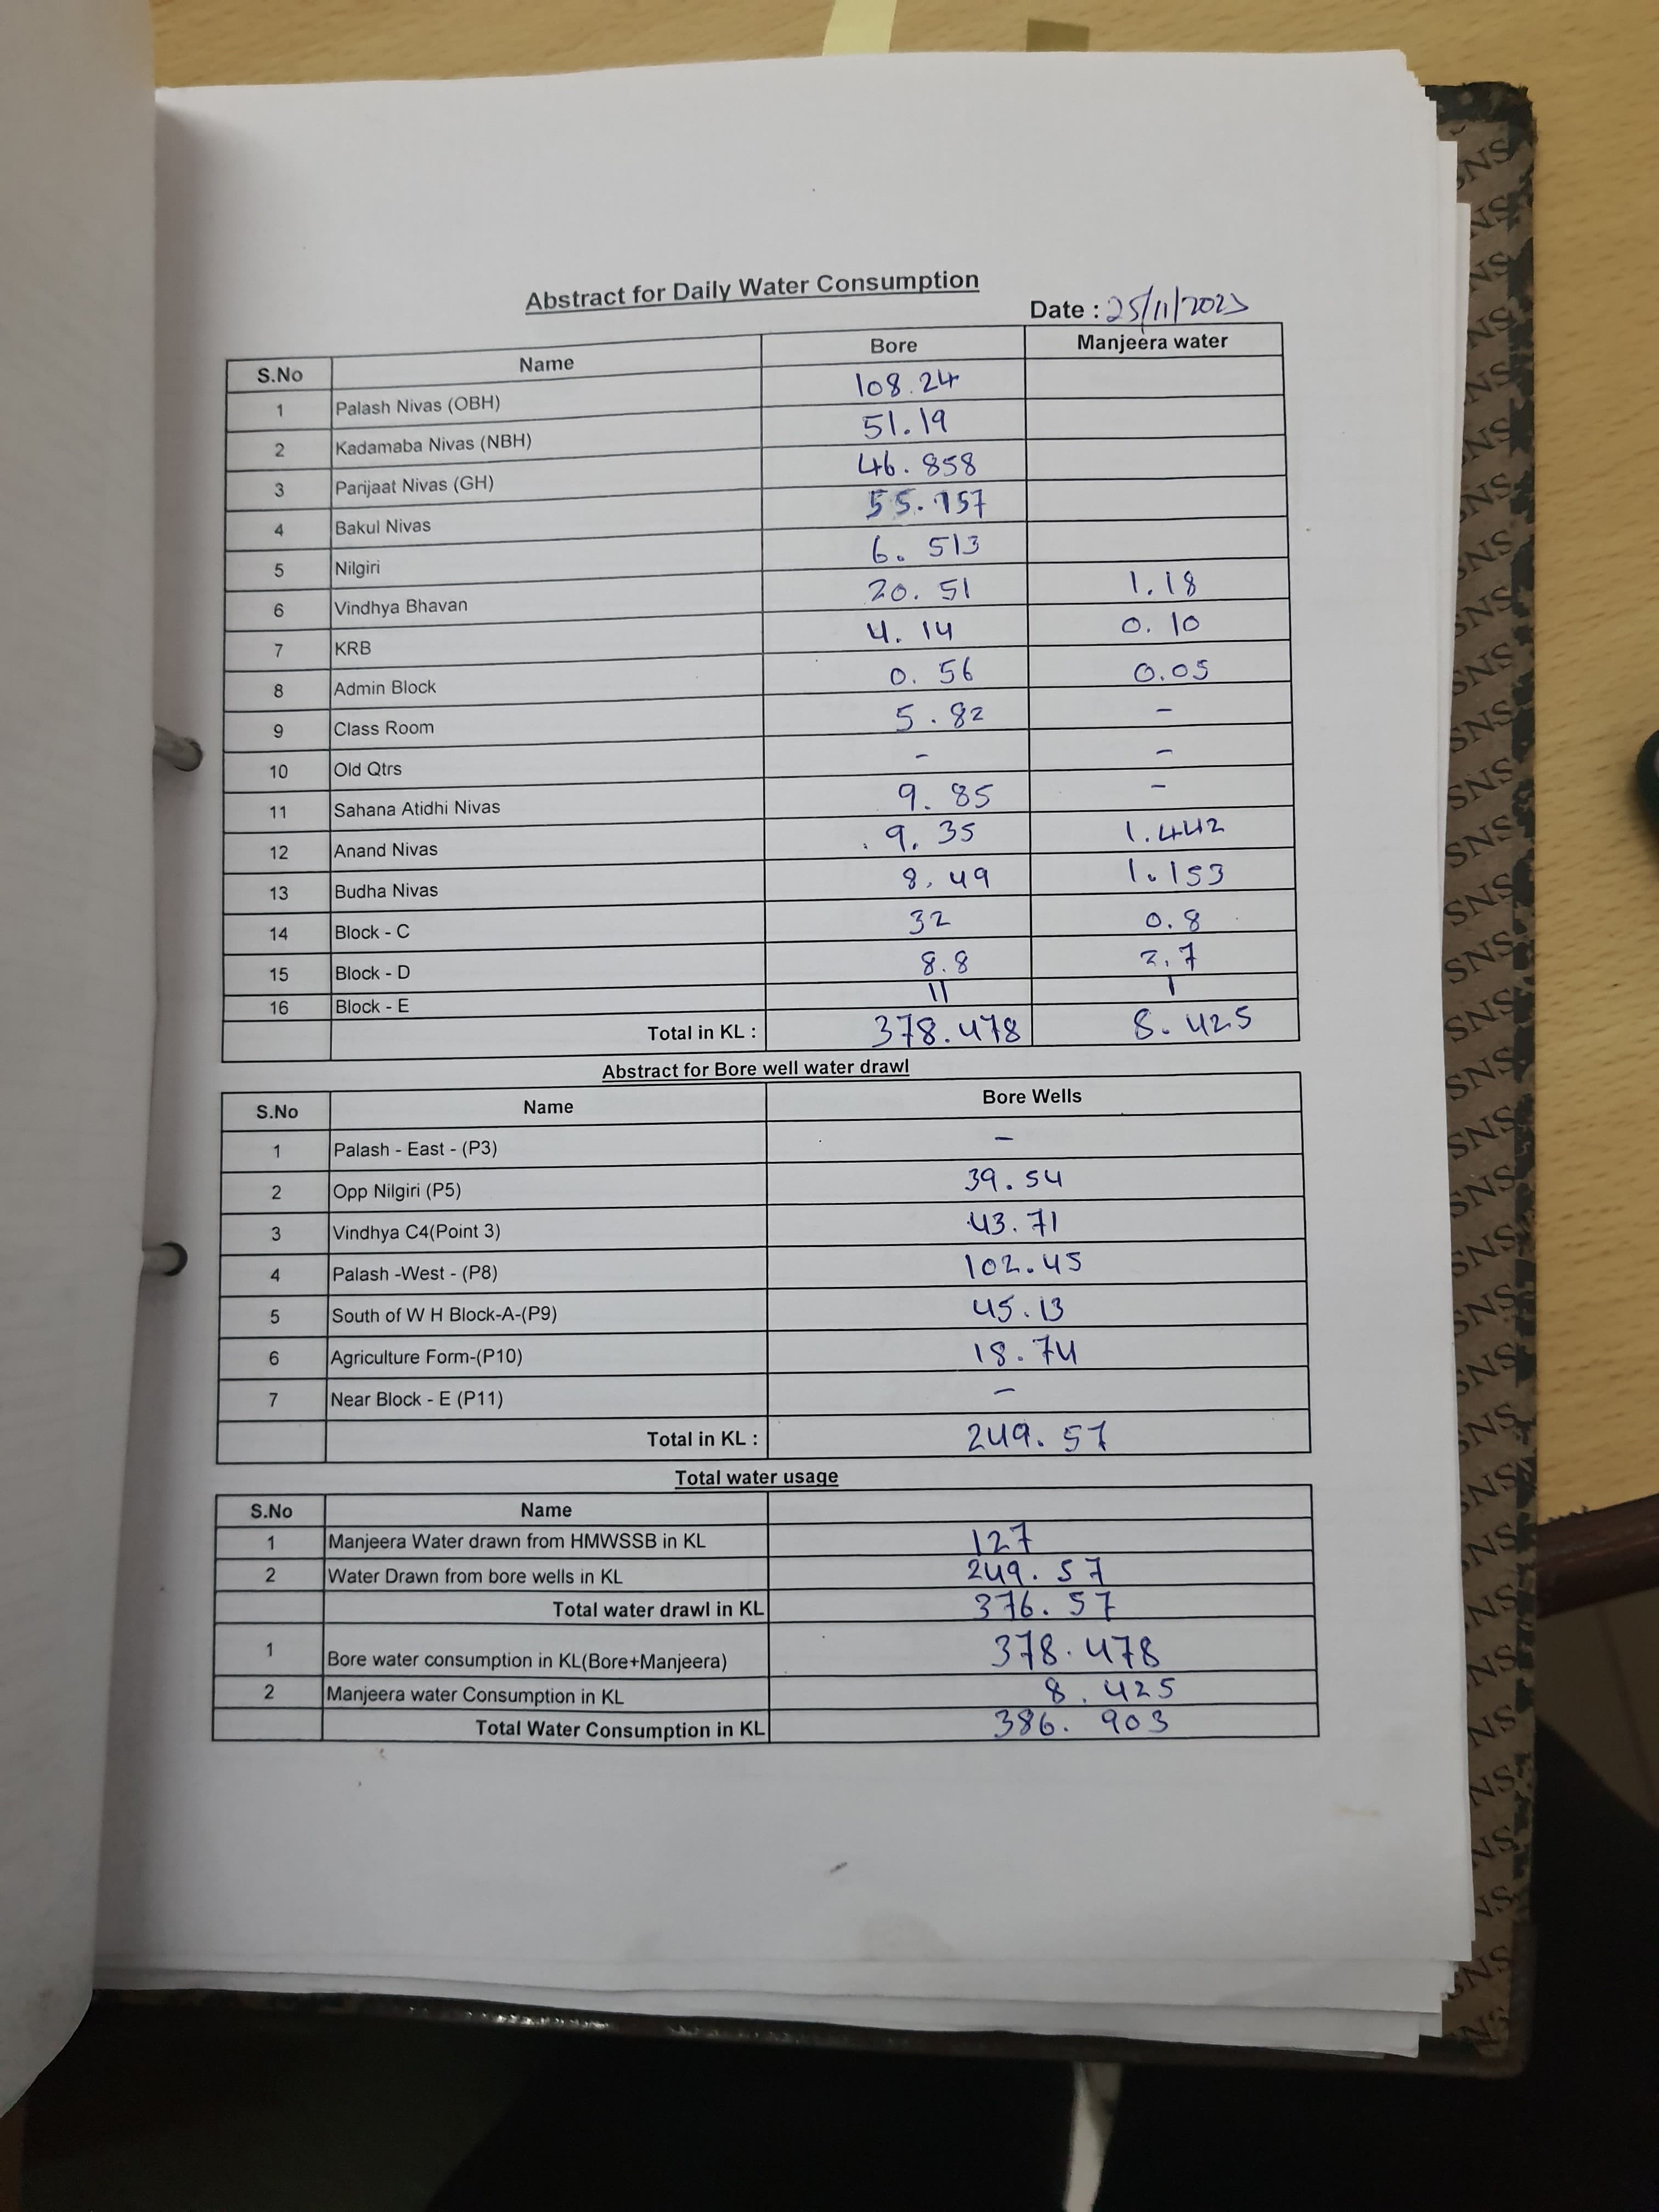 Abstract for Daily Water Consumption
Date : 25/11/2023
S.No Name Bore Manjeera water
1 Palash Nivas (OBH) 108.24
2 Kadamaba Nivas (NBH) 51.19
3 Parijaat Nivas (GH) 46.858
4 Bakul Nivas 55.157
5 Nilgiri 6.513
6 Vindhya Bhavan 20.51 1.18
7 KRB 4.14 0.10
8 Admin Block 0.56 0.05
9 Class Room 5.82 -
10 Old Qtrs - -
11 Sahana Atidhi Nivas 9.85 -
12 Anand Nivas 9.35 1.442
13 Budha Nivas 8.49 1.153
14 Block - C 32 0.8
15 Block - D 8.8 2.7
16 Block - E 11 1
Total in KL : 378.478 8.425
Abstract for Bore well water drawl
S.No Name Bore Wells
1 Palash - East - (P3) -
2 Opp Nilgiri (P5) 39.54
3 Vindhya C4(Point 3) 43.71
4 Palash -West - (P8) 102.45
5 South of W H Block-A-(P9) 45.13
6 Agriculture Form-(P10) 18.74
7 Near Block - E (P11) -
Total in KL : 249.57
Total water usage
S.No Name
1 Manjeera Water drawn from HMWSSB in KL 127
2 Water Drawn from bore wells in KL 249.57
Total water drawl in KL 376.57
1 Bore water consumption in KL(Bore+Manjeera) 378.478
2 Manjeera water Consumption in KL 8.425
Total Water Consumption in KL 386.903